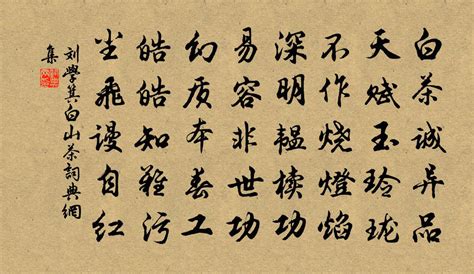 白茶诚异品
天赋玉玲珑
不作烧燈焰
深明韫椟功
易容非世功
幻质本春工
皓皓知難污
尘飛谩自红
刘學箕白山茶詞典網
集